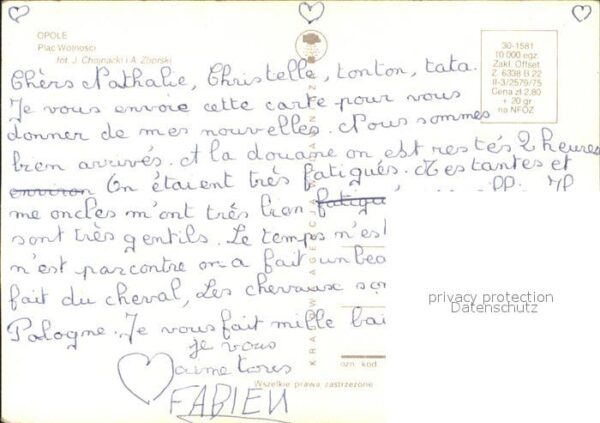 OPOLE
Plac Wolności
fot. J. Chojnacki i A. Zborski
30-1581
10 000 egz.
Zakł. Offset
Z. 6338 B 22
II-3/2579/75
Cena zł 2.80
+ 20 gr
na NFOZ
Chèrs Nathalie, Christelle, tonton, tata.
Je vous envoie cette carte pour vous
donner de mes nouvelles. Nous sommes
bien arrivés. A la douane on est restés 2 heures
environ On étaient très fatigués. Les tantes et
me oncles m'ont très bien fatigu
sont très gentils. Le temps n'es
n'est parcontre on a fait un bea
fait du cheval, Les chevaux son
Pologne. Je vous fait mille bai
je vous
aime tous
FABIEN
privacy protection
Datenschutz
ozn. kod.
Wszelkie prawa zastrzeżone